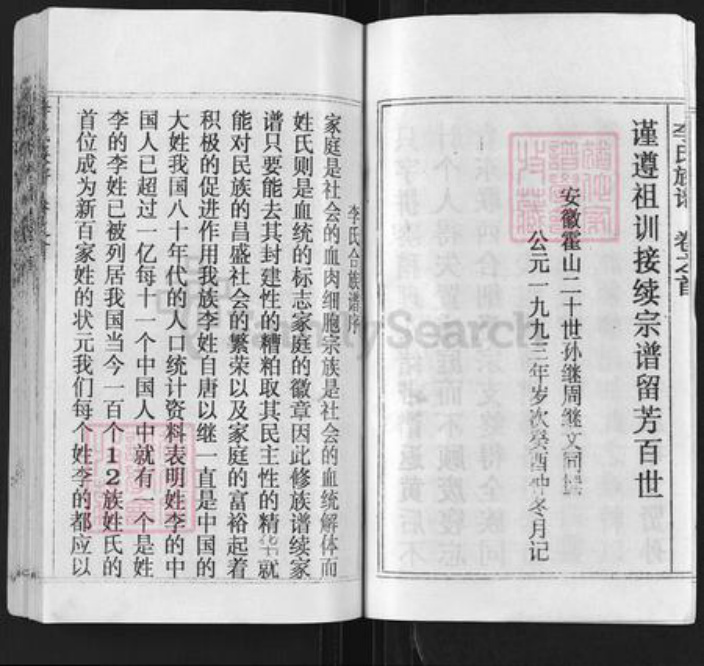 李氏族谱 卷之首
谨遵祖训接续宗谱留芳百世
安徽霍山二十世孙继周继文同
公元一九九三年岁次癸酉仲冬月记
李氏合族谱序
家庭是社会的血肉细胞宗族是社会的血统解体而
姓氏则是血统的标志家庭的徽章因此修族谱续家
谱只要能去其封建性的糟粕取其民主性的精华就
能对民族的昌盛社会的繁荣以及家庭的富裕起着
积极的促进作用我族李姓自唐以继一直是中国的
大姓我国八十年代的人口统计资料表明姓李的中
国人已超过一亿每十一个中国人中就有一个是姓
李的李姓已被列居我国当今一百个12族姓氏的
首位成为新百家姓的状元我们每个姓李的都应以
FamilySearch